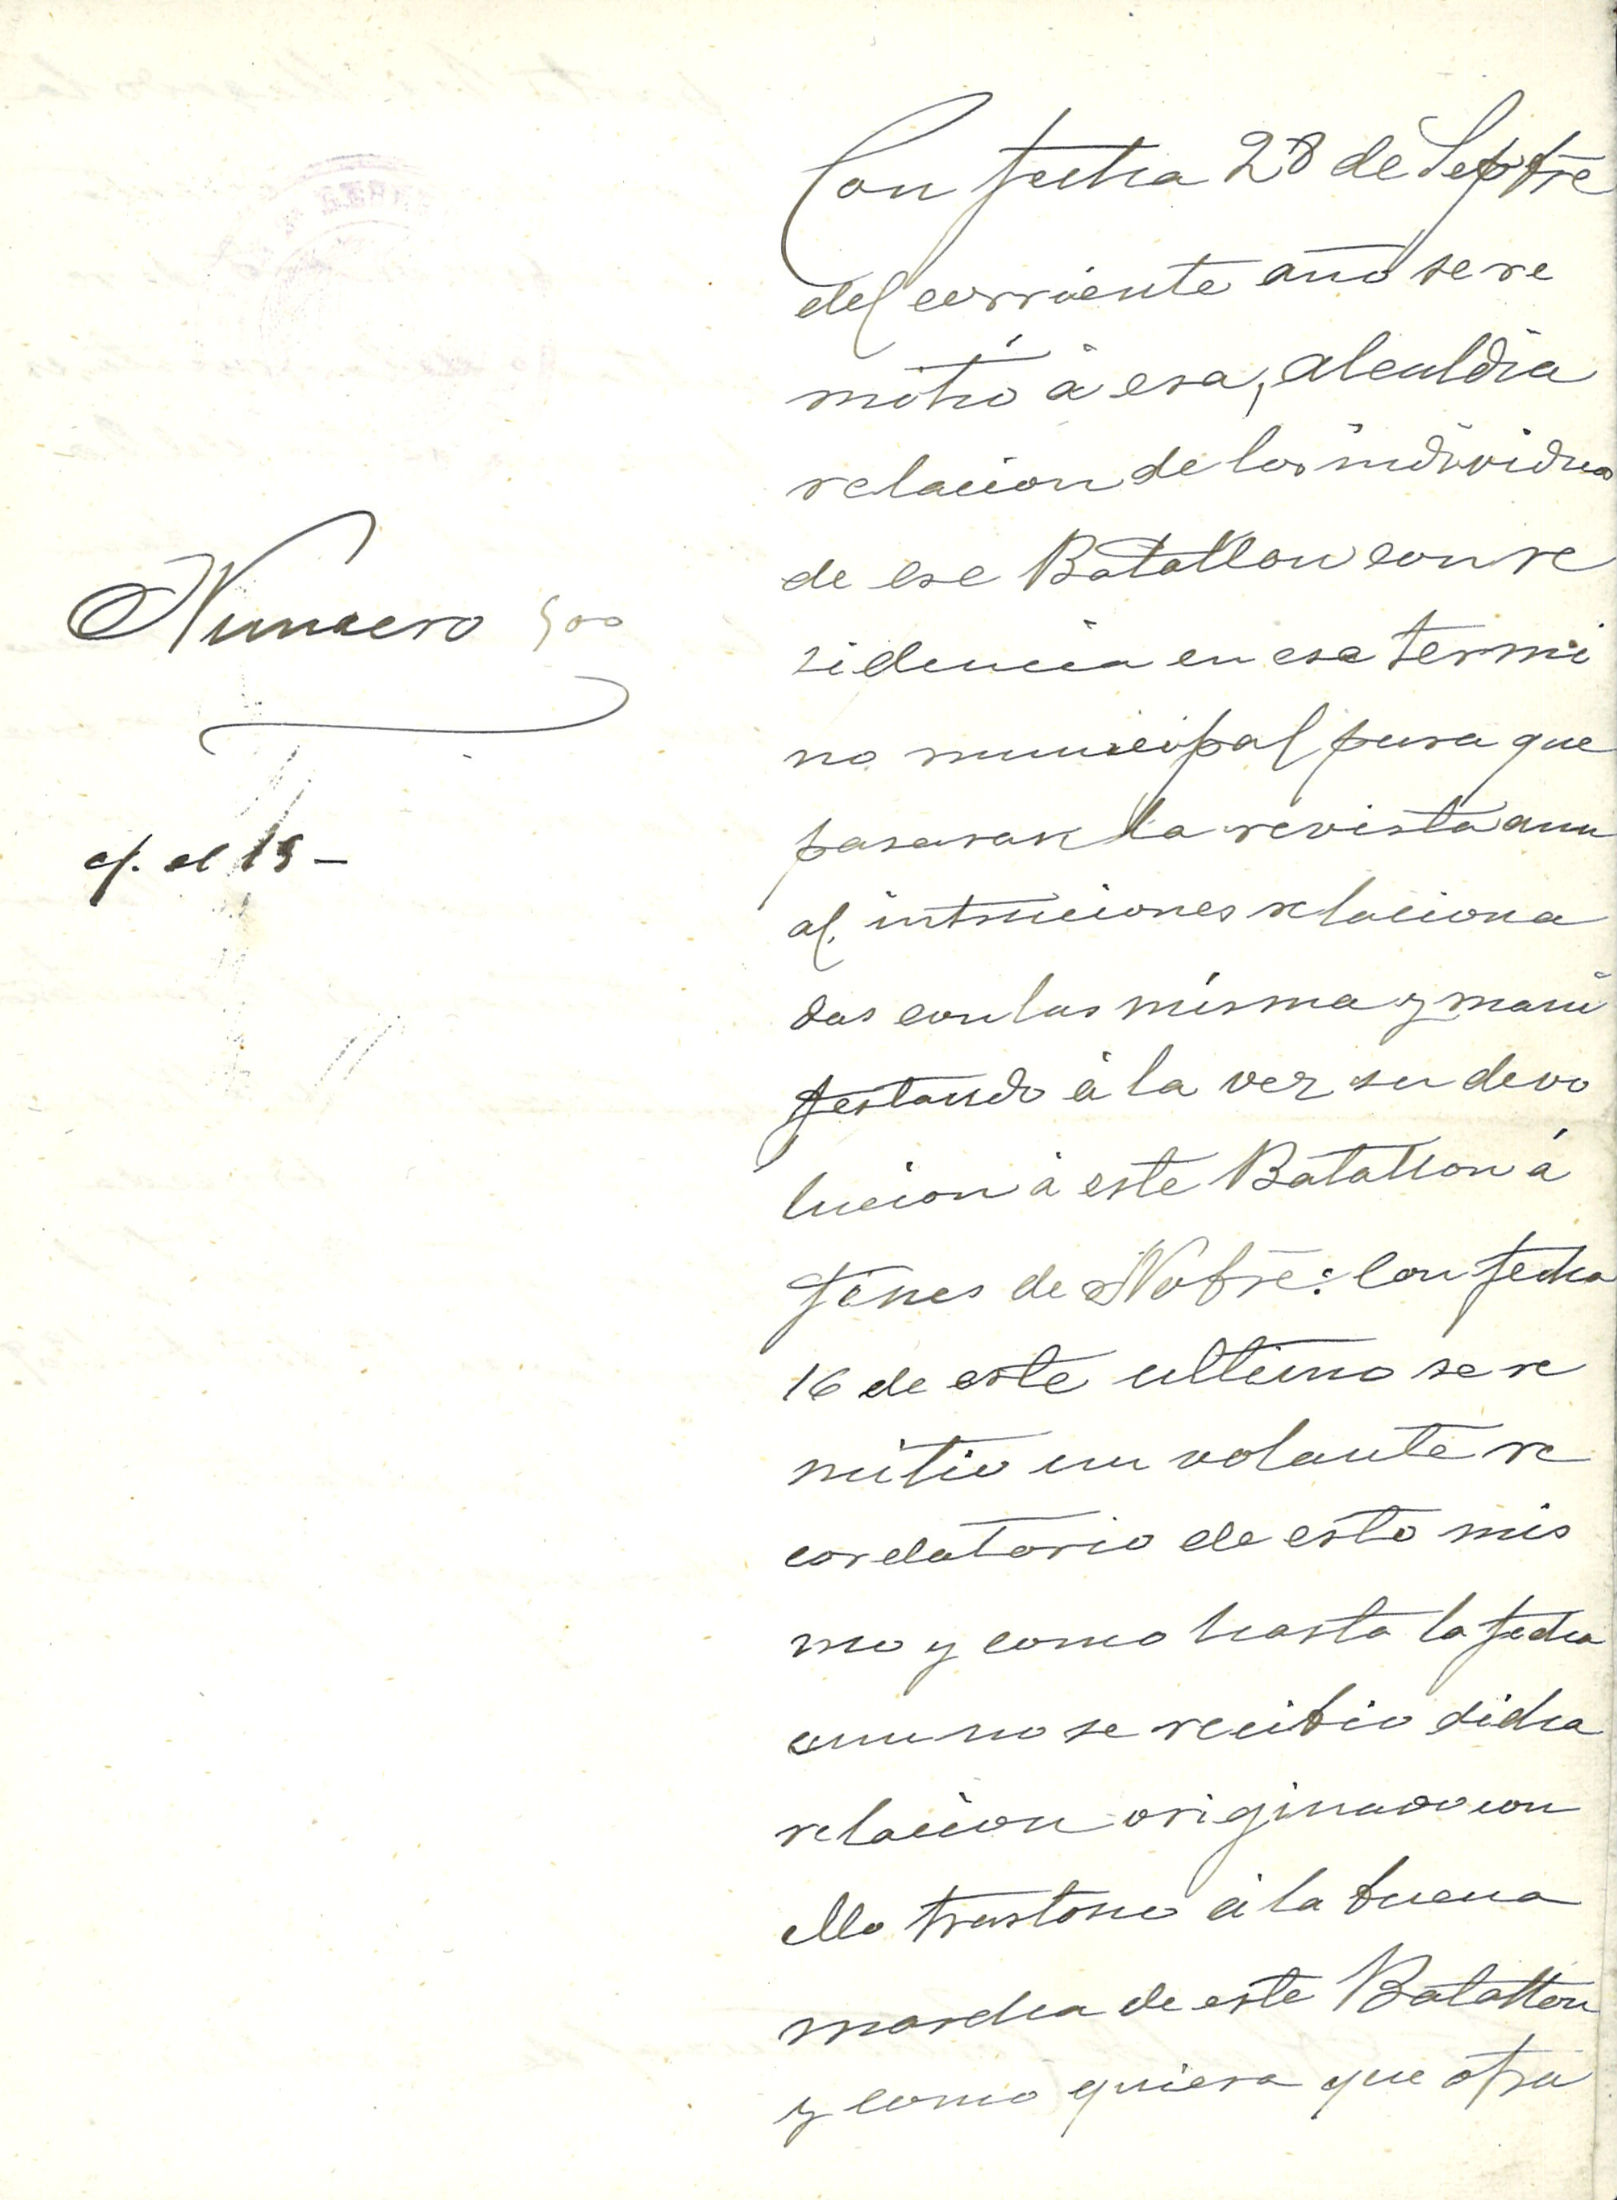 Numero 500
cf. el 19 -
Con fecha 28 de Septre
del corriente año se re
mitió á esa, alcaldia
relacion de los individuos
de ese Batallon con re
sidencia en ese termi
no municipal para que
pasaran la revista anu
al, intruciones relaciona
das con las misma y mani
festando á la vez su devo
lucion á este Batallon á
fines de Nobre: Con fecha
16 de este ultimo se re
mitio un volante re
cordatorio de esto mis
mo y como hasta la fecha
aun no se recibio dicha
relacion originando con
ello trastorno á la buena
marcha de este Batallon
y como quiera que otra